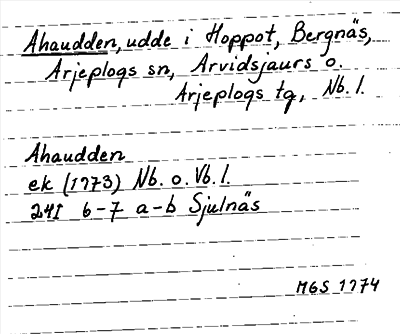 Ahaudden, udde i Hoppot, Bergnäs,
Arjeplogs sn, Arvidsjaurs o.
Arjeplogs tg, Nb. l.
Ahaudden
ek (1973) Nb. o. Vb. l.
24I 6-7 a-b Sjulnäs
MGS 1974